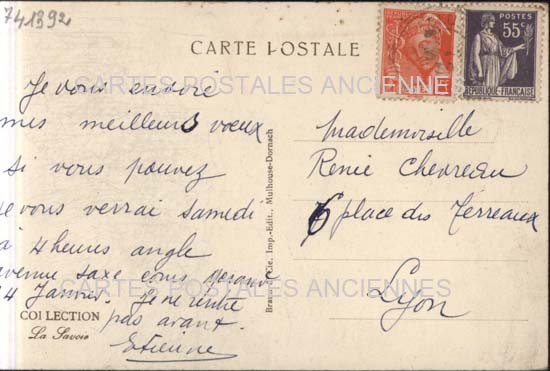 741392
CARTE POSTALE
POSTES
55c
REPUBLIQUE-FRANÇAISE
CARTES POSTALES ANCIENNES
Je vous envoie
mes meilleurs vœux
si vous pouvez
je vous verrai samedi
à 4 heures angle
avenue saxe cours
4 Janvier. Je ne rentre
pas avant.
Etienne
COLLECTION
La Savoie
Braun & Cie, Imp.-Edit., Mulhouse-Dornach
Mademoiselle
Renée Chevreau
6 place des Terreaux
Lyon
CARTES POSTALES ANCIENNES